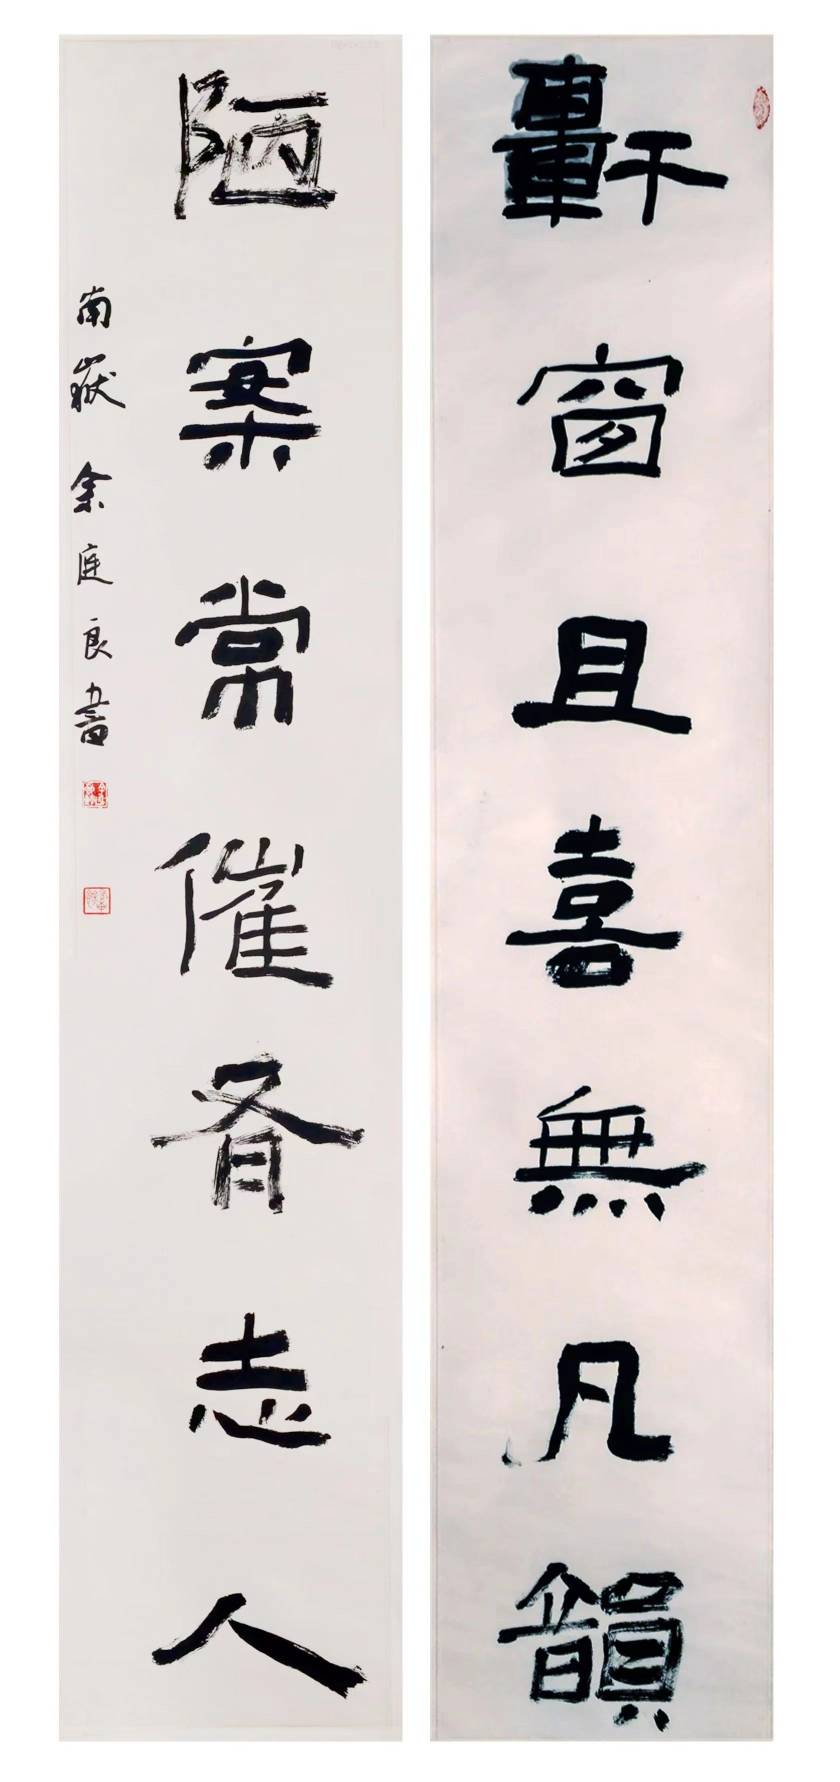 軒窗且喜無凡韻
陋案常催有志人
南嶽余庭良書